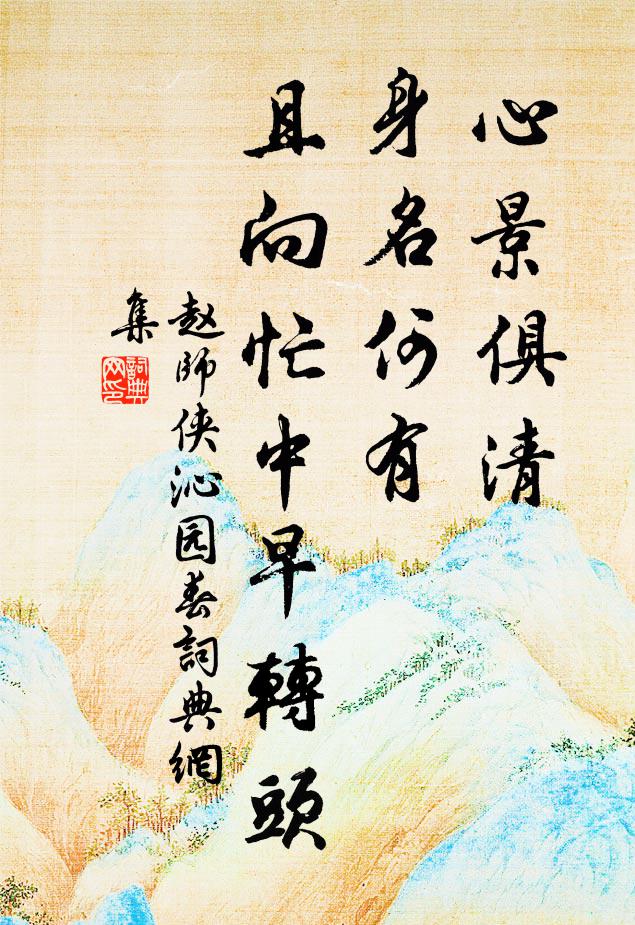 心景俱清
身名何有
且向忙中早轉頭
赵師俠沁园春詞典網
集
詞典
网印